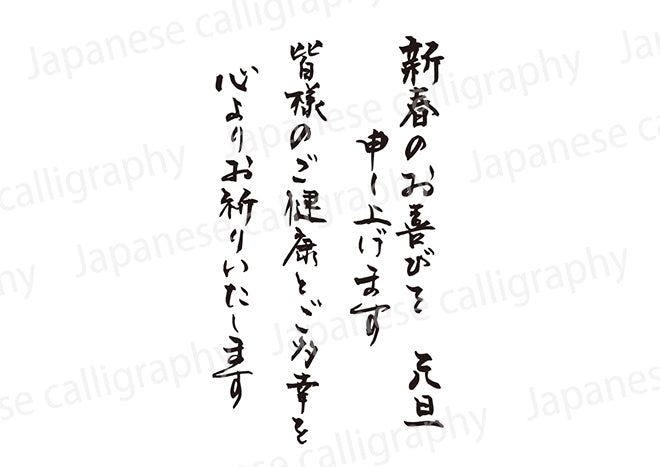 新春のお喜びを
申し上げます
元旦
皆様のご健康とご多幸を
心よりお祈りいたします
Japanese calligraphy
Japanese calligraphy
Japanese calligraphy
Japanese calligraphy
Japanese calligraphy
Japanese calligraphy
Japanese calligraphy